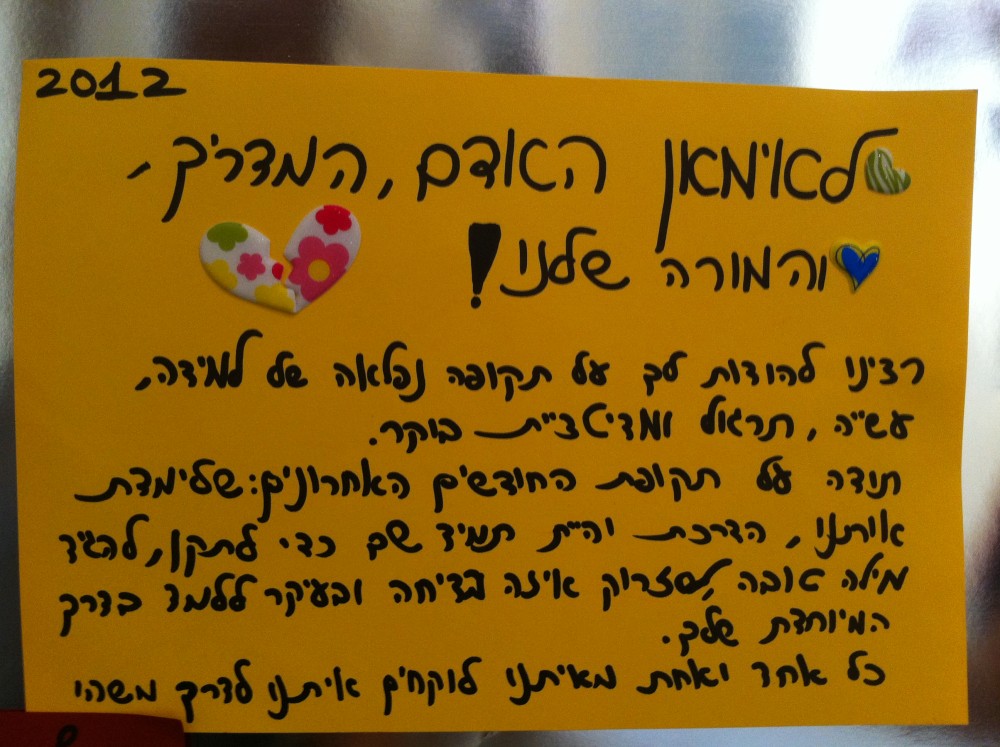 2012
לאימאן האדם, המדריך -
והמורה שלנו!
רצינו להודות לך על תקופה נפלאה של למידה,
עשייה, תרגול ומדיטציית בוקר.
תודה על תקופת החודשים האחרונים: שלימדת
אותנו, הדרכת והיית תמיד שם כדי לתקן, להגיד
מילה טובה, לזרוק איזה בדיחה ובעיקר ללמד בדרך
המיוחדת שלך.
כל אחד ואחת מאיתנו לוקחים איתנו לדרך משהו